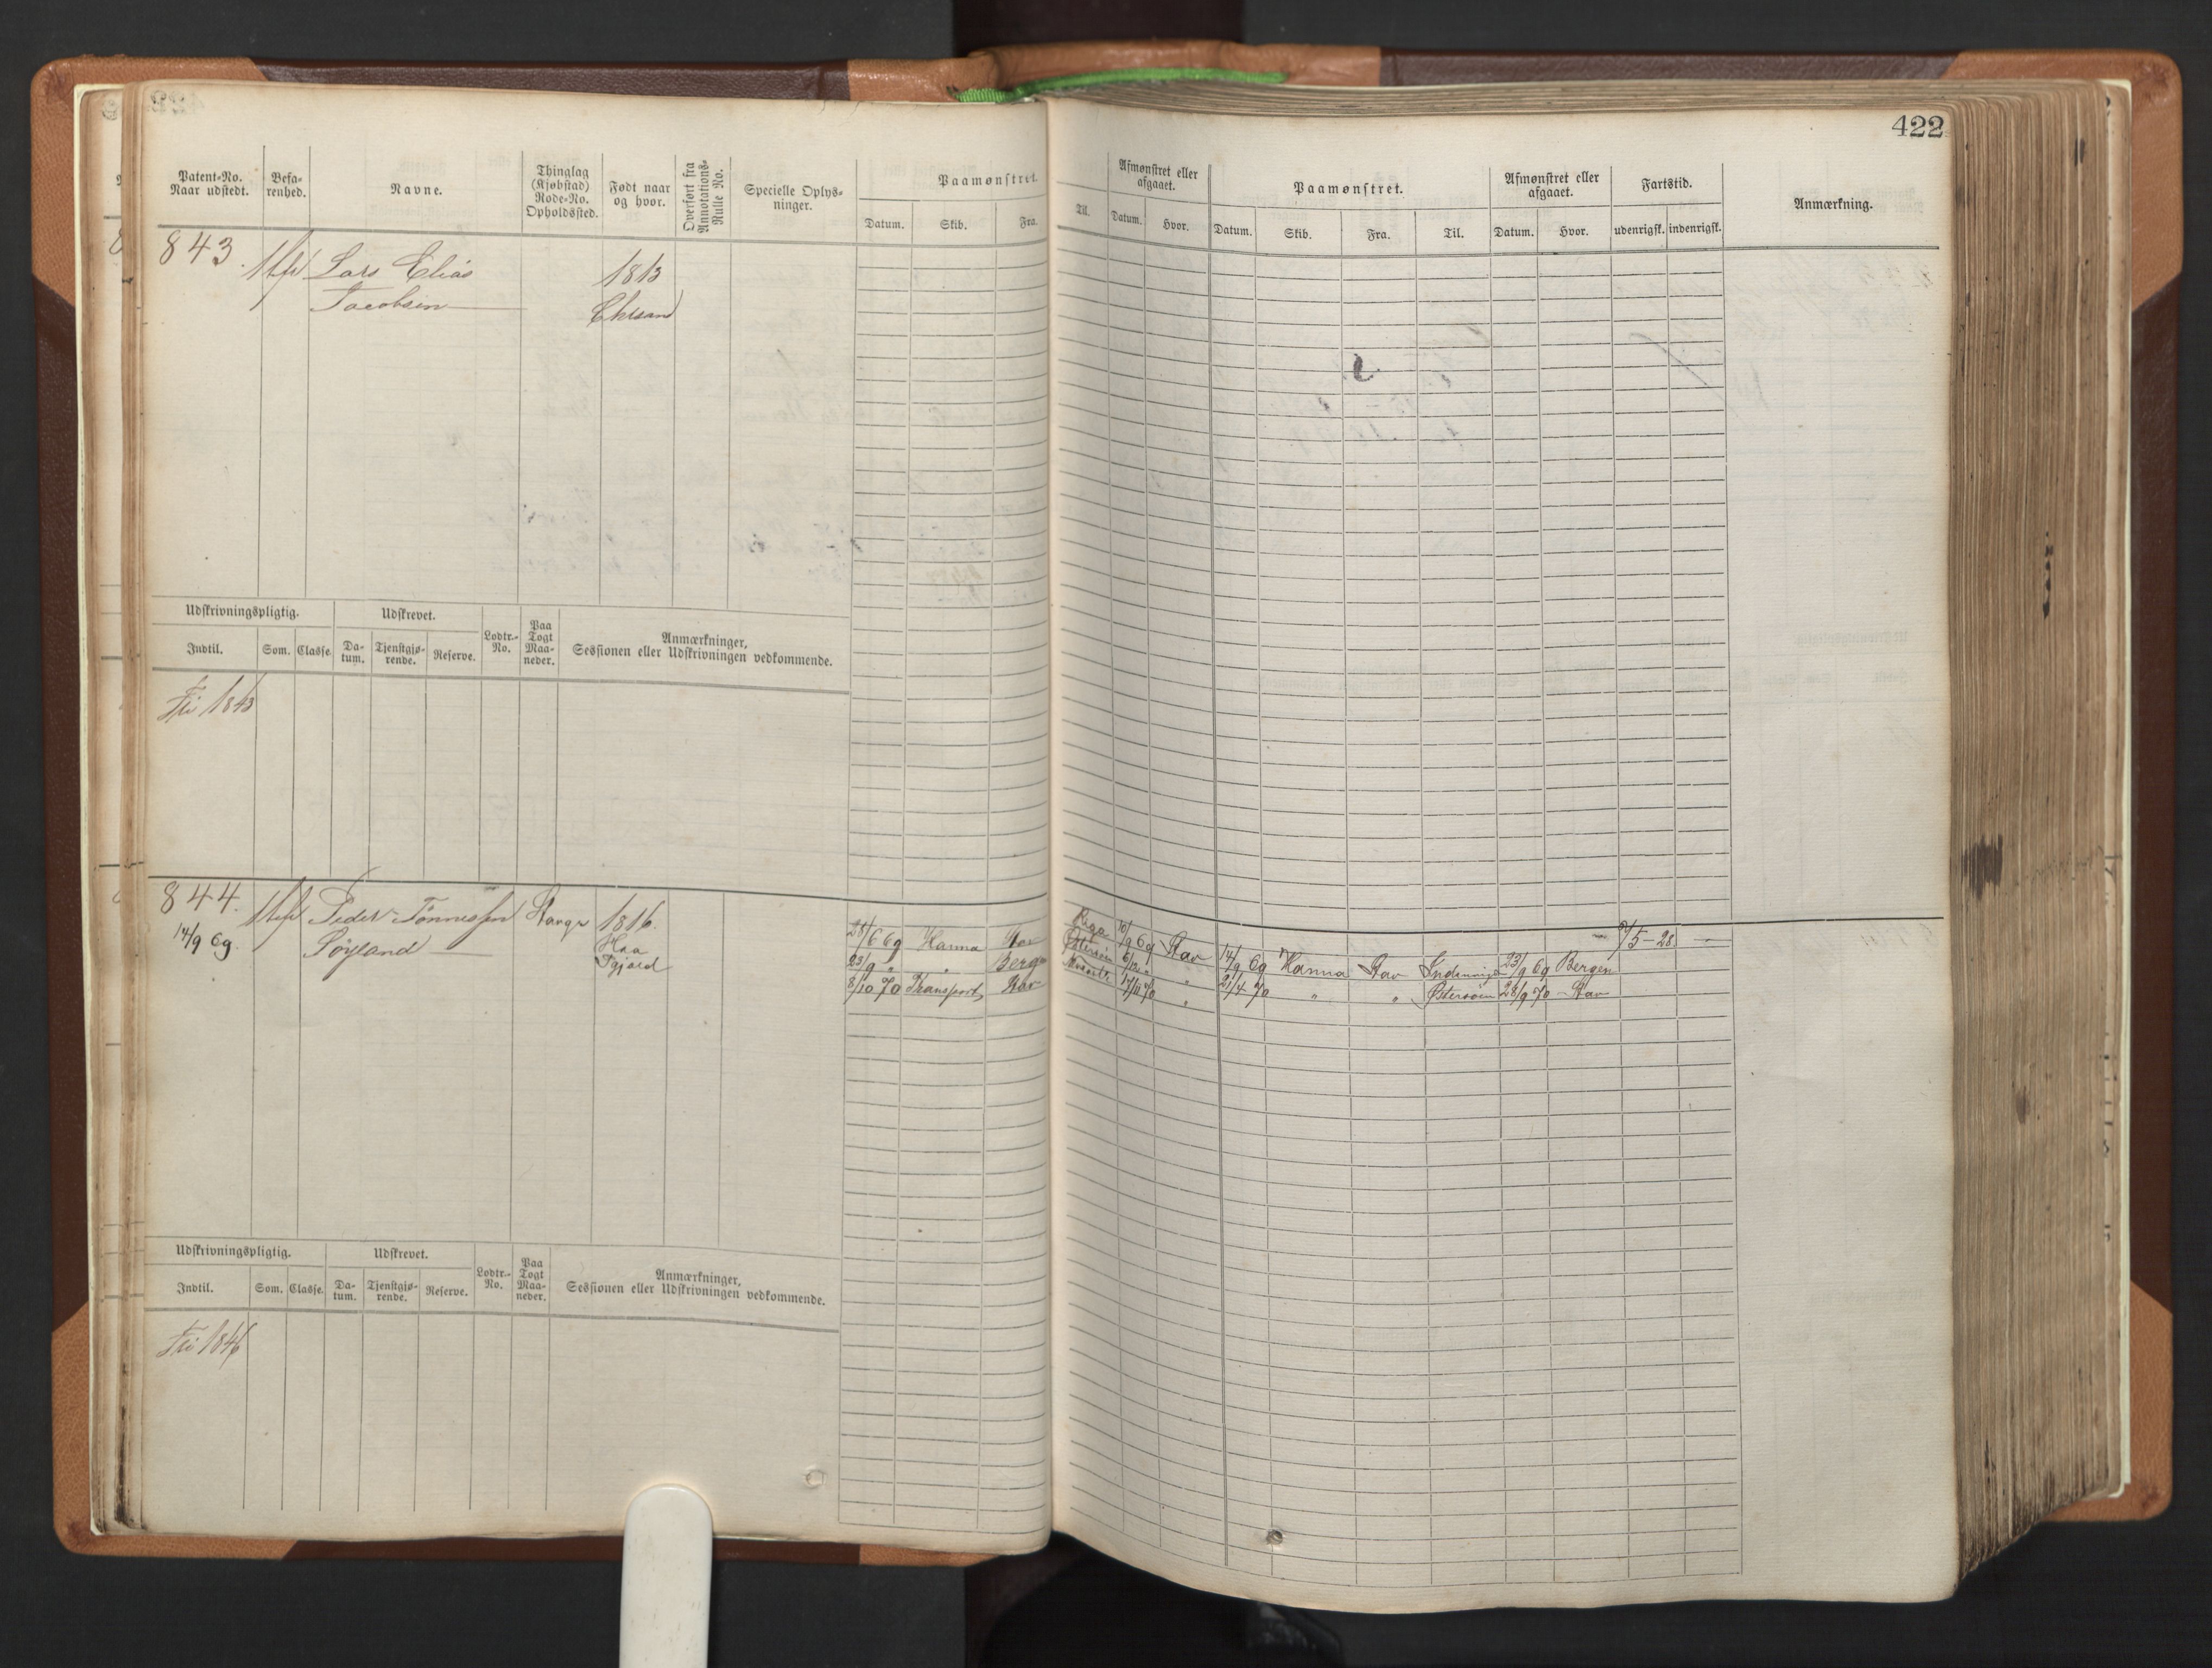 422
Patent-No. Naar udstedt.
Befarenhed.
Navne.
Thinglag (Kjøbstad) Rode-No. Opholdssted.
Født naar og hvor.
Overført fra Annotations-Rulle No.
Specielle Oplysninger.
Paamønstret.
Datum. Skib. Fra. Til.
Afmønstret eller afgaaet.
Datum. Hvor.
Paamønstret.
Datum. Skib. Fra. Til.
Afmønstret eller afgaaet.
Datum. Hvor.
Fartstid.
udenrigsk. indenrigsk.
Anmærkning.
843. Lars Elias 1813
Jacobsen Chrsand
Udskrivningspligtig. Udskrevet. Lodtr.-No. Paa Togt Maaneder. Anmærkninger, Sessionen eller Udskrivningen vedkommende.
Indtil. Som. Classe. Datum. Tjenstgjørende. Reserve.
Fri 1843
844. Peder Tønnessen Stavgr 1816.
14/9 69. Søyland Haa
28/6 69 Hanna Stav Riga 10/9 69 Stav 14/9 69 Hanna Stav Indenrigs 23/9 69 Bergen
23/9 " " Bergen Østersøen " 21/4 70 " " Østersøen 28/9 70 Stav
8/10 70 Transport Stav 17/11 70 "
Udskrivningspligtig. Udskrevet. Lodtr.-No. Paa Togt Maaneder. Anmærkninger, Sessionen eller Udskrivningen vedkommende.
Indtil. Som. Classe. Datum. Tjenstgjørende. Reserve.
Fri 1846